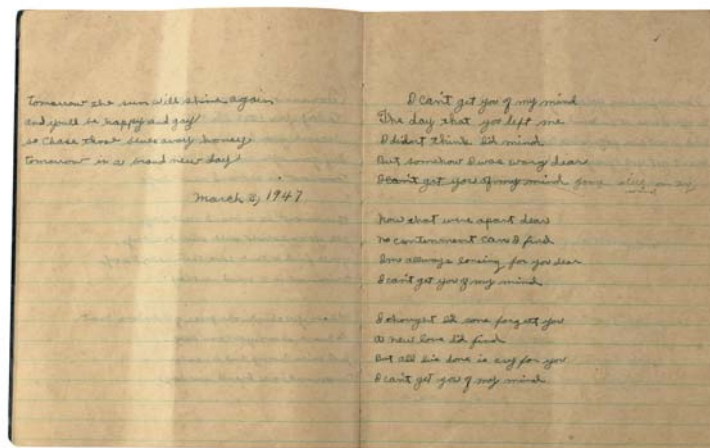 Tomorrow the sun will shine again
and you'll be happy and gay
so chase those blues away honey
tomorrow is a brand new day
March 3, 1947
I can't get you of my mind
The day that you left me
I didnt think Id mind
But somehow I was wrong dear
I can't get you of my mind your still on my mind
now that were apart dear
no contennment can I find
Im allways longing for you dear
I can't get you of my mind
I thought Id sone forget you
a new love Id find
But all Iv done is cry for you
I can't get you of my mind